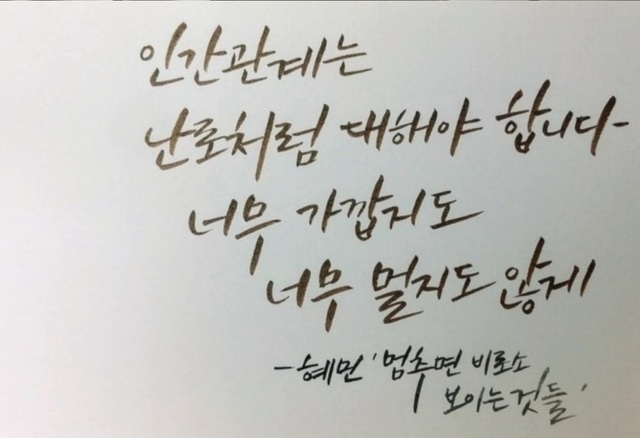 인간관계는
난로처럼 대해야 합니다-
너무 가깝지도
너무 멀지도 않게
-혜민 '멈추면 비로소
보이는 것들'